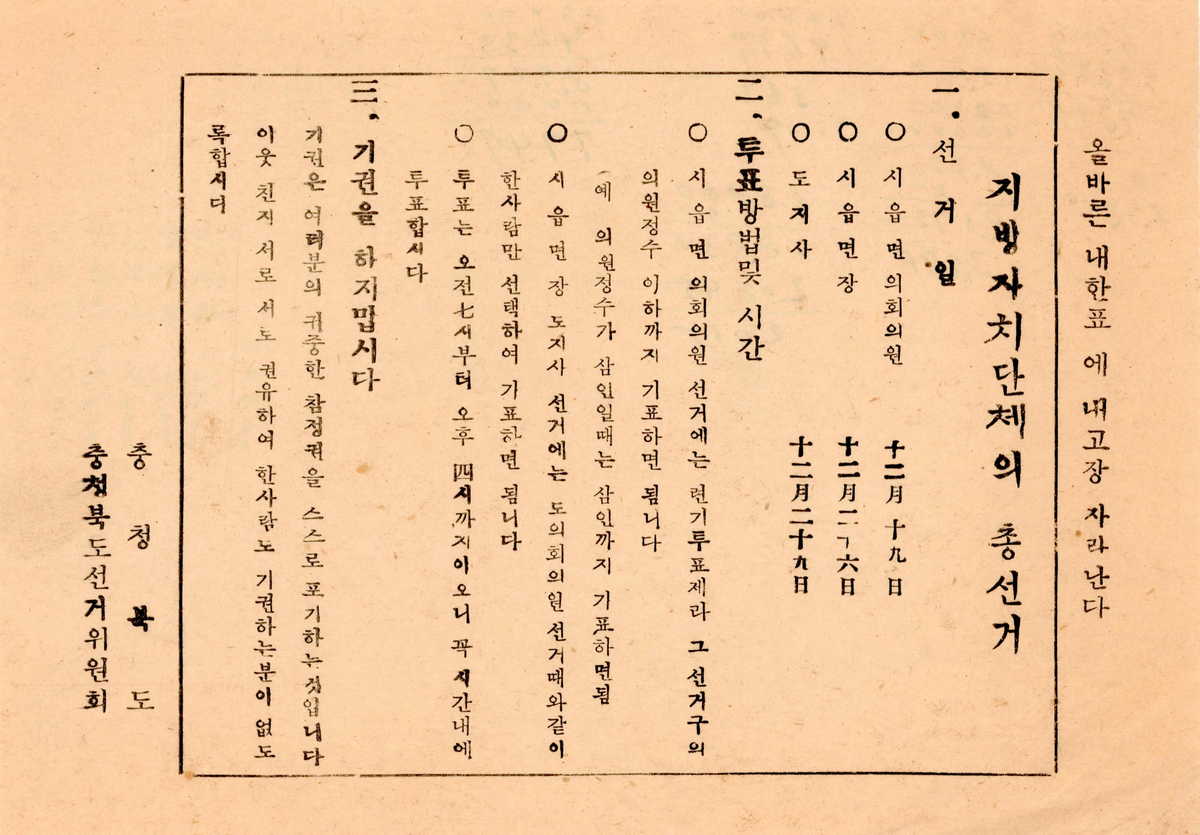 올바른 내한표 에 내고장 자라난다
지방자치단체의 총선거
一. 선거일
○ 시읍면의회의원 十二月十九日
○ 시읍면장 十二月二十六日
○ 도지사 十二月二十九日
二. 투표방법및 시간
○ 시읍면의회의원 선거에는 련기투표제라 그 선거구의
의원정수 이하까지 기표하면 됩니다
예 의원정수가 삼인일때는 삼인까지 기표하면됨
○ 시읍면장 도지사 선거에는 도의회의원 선거때와같이
한사람만 선택하여 기표하면 됩니다
○ 투표는 오전七시부터 오후 四시까지이오니 꼭 시간내에
투표합시다
三. 기권을 하지맙시다
기권은 여러분의 귀중한 참정권을 스스로 포기하는것입니다
이웃 친지 서로 서로 권유하여 한사람도 기권하는분이 없도
록합시다
충청북도
충청북도선거위원회